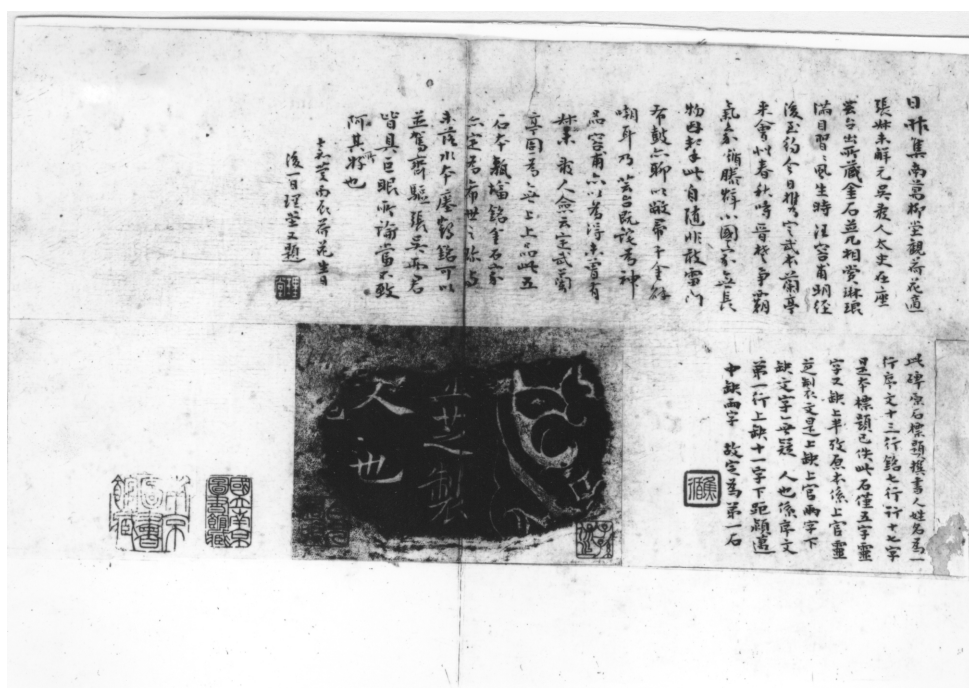 日昨集南萬柳堂觀荷花適
張叔未解元吳 人太史在座
芸台出所藏金石並几相賞琳琅
滿目習習風生時汪容甫明經
後至約今日攜定武本蘭亭
來會似春秋時晉楚爭霸
氣象 小國 無長
物 此自隨非敢雷門
布鼓亦聊以敝帚千金
嘲耳乃芸台既詫為神
品容甫亦以為得未曾有
叔未 人僉云定武蘭
亭固為無上上品此五
石本 塔銘金石家
亦定為希世之珍與
未落水本瘞鶴銘可以
並駕齊驅張吳兩君
皆具巨眼所論當不致
阿其好也
丙辰荷花生日
後一日理堂又題
此碑原石標題撰書人姓名為一
行序文十三行銘七行行十七字
是本標題已佚此石僅五字靈
字又缺上半攷原本係上官靈
芝製文是上缺上官兩字下
缺文字無疑 人也係序文
第一行上缺十一字下距頤邁
中缺兩字 故定為第一石
芝製
人也
國立南京圖書館藏